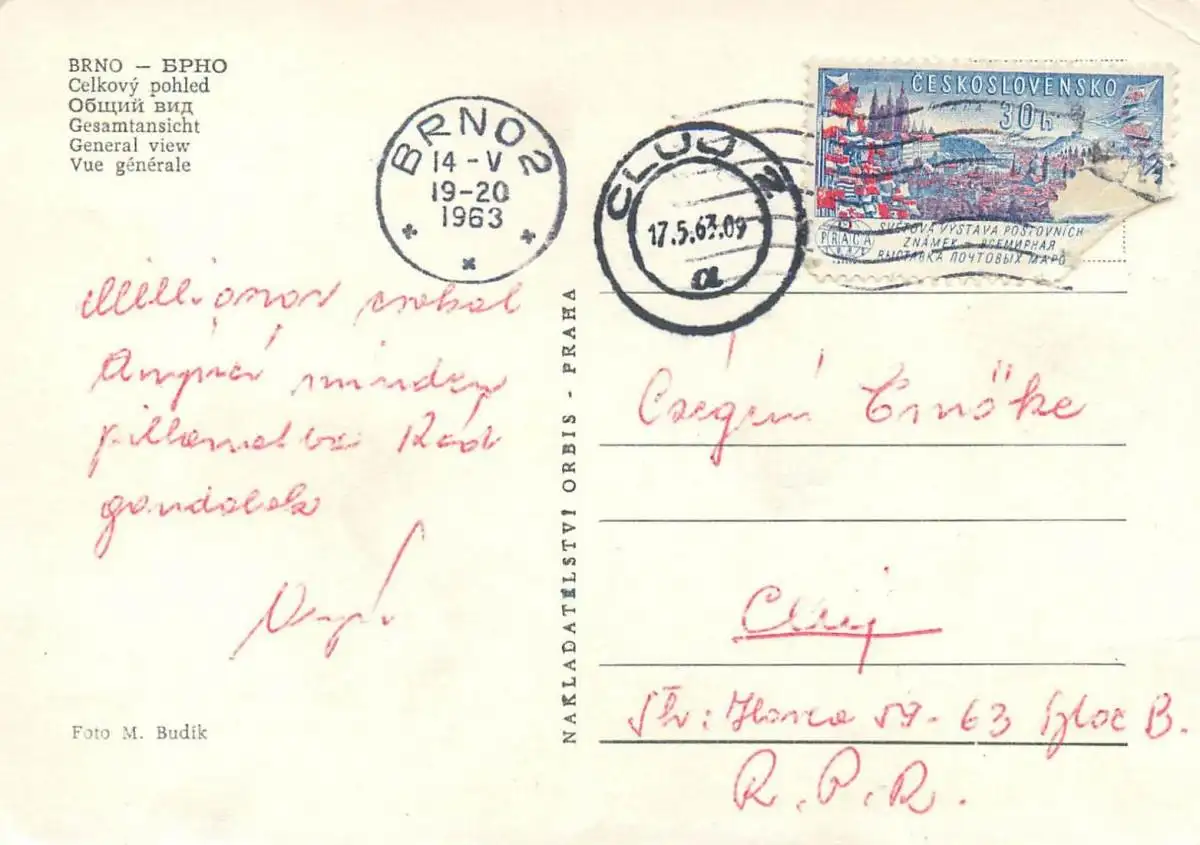 BRNO – БРНО
Celkový pohled
Общий вид
Gesamtansicht
General view
Vue générale
BRNO 2
14 -V
19-20
1963
CLUJ 2
17.5.63.09
a
ČESKOSLOVENSKO
PRAHA 30 h
PRAGA
1962
SVĚTOVÁ VÝSTAVA POŠTOVNÍCH
ZNÁMEK – ВСЕМИРНАЯ
ВЫСТАВКА ПОЧТОВЫХ МАРО
Milliószor csókol
Anyuci minden
pillanatba Rád
gondolok
NAKLADATELSTVÍ ORBIS - PRAHA
Enőke
Cluj
Str: Horea 59-63 bloc B.
R.P.R.
Foto M. Budík